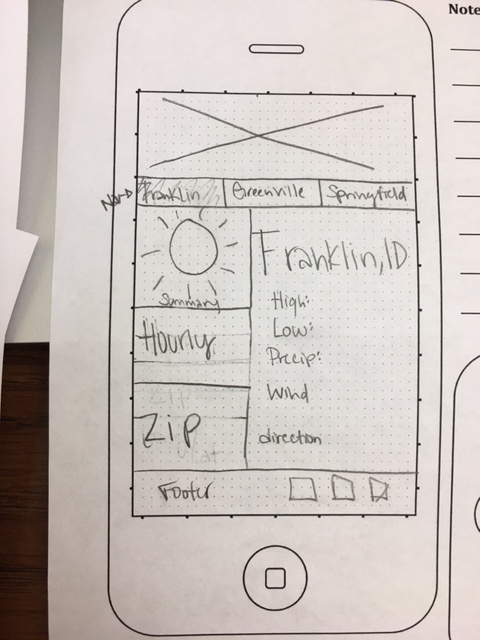 Note
Nav→
Franklin
Greenville
Springfield
Summary
Franklin, ID
High:
Low:
Precip:
Wind
direction
Hourly
Zip
Footer